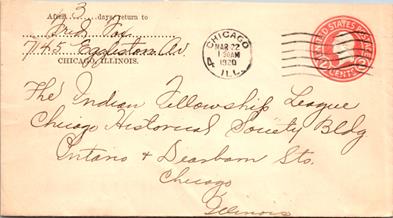 After 3 days return to
7145 Eggleston Av.
CHICAGO, ILLINOIS.
CHICAGO
MAR 22
1 30AM
1920
ILL.
UNITED STATES POSTAGE
2 CENTS 2
The Indian Fellowship League
Chicago Historical Society Bldg
Ontario & Dearborn Sts.
Chicago
Illinois